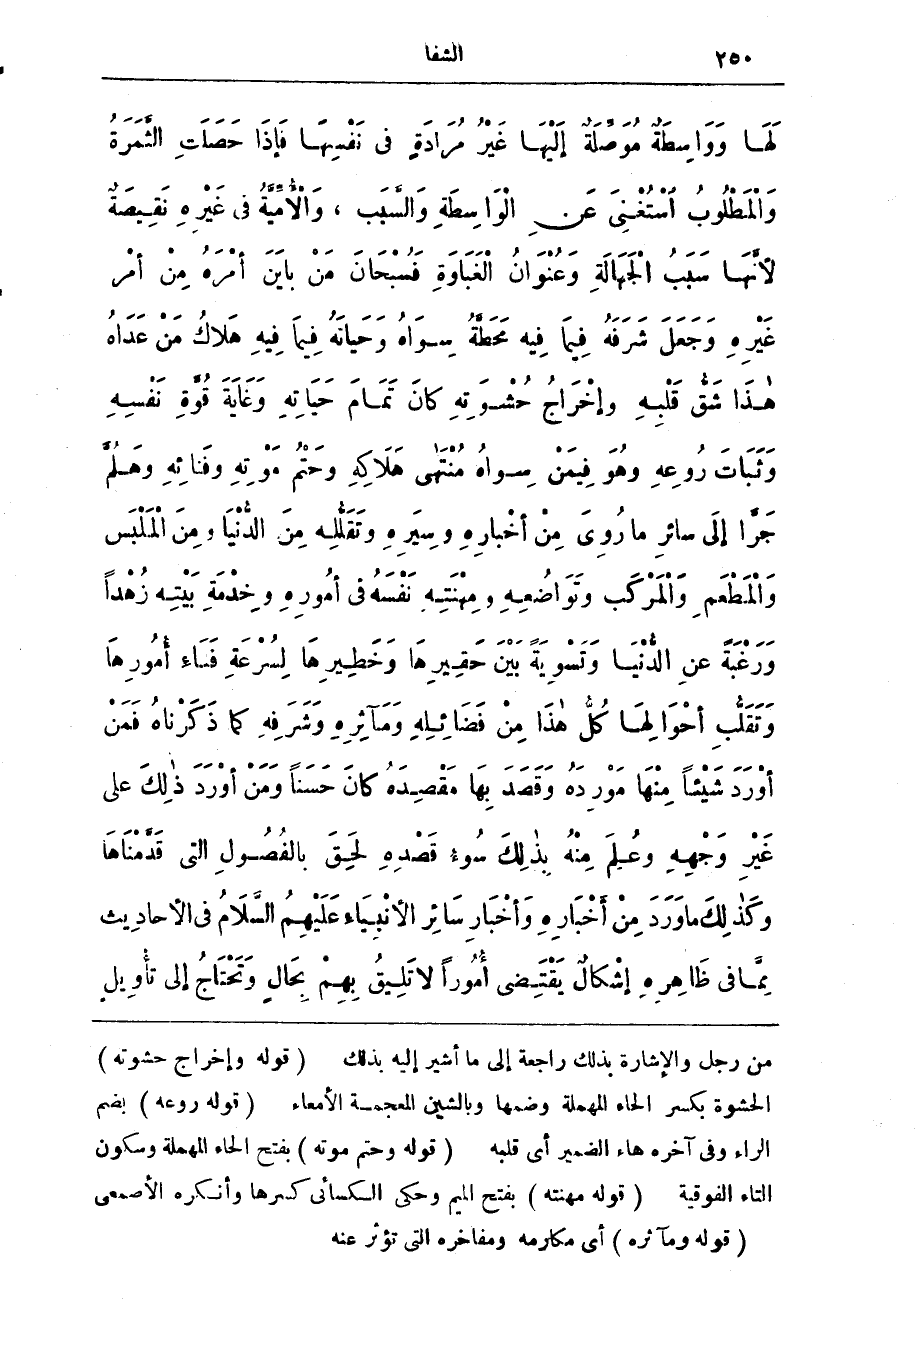 ٢٥٠ الشفا
لَهَا وَوَاسِطَةٌ مُوَصِّلَةٌ إِلَيْهَا غَيْرُ مُرَادَةٍ فى نَفْسِهَا فَإِذَا حَصَلَتِ الثَّمَرَةُ
وَالْمَطْلُوبُ اسْتُغْنِىَ عَنِ الْوَاسِطَةِ وَالسَّبَبِ ، وَالْأُمِّيَّةُ فى غَيْرِهِ نَقِيصَةٌ
لأَنَّهَا سَبَبُ الْجَهَالَةِ وَعُنْوَانُ الْغَبَاوَةِ فَسُبْحَانَ مَنْ بايَنَ أَمْرَهُ مِنْ أَمْرِ
غَيْرِهِ وَجَعَلَ شَرَفَهُ فِيمَا فِيهِ مَحَطَّةُ سِوَاهُ وَحَيَاتَهُ فِيمَا فِيهِ هَلاكُ مَنْ عَدَاهُ
هٰذَا شَقُّ قَلْبِهِ وإِخْرَاجُ حُشْوَتِهِ كانَ تَمَامَ حَيَاتِهِ وَغَايَةَ قُوَّةِ نَفْسِهِ
وَثَبَاتَ رُوعِهِ وهُوَ فِيمَنْ سِواهُ مُنْتَهٰى هَلَاكِهِ وحَتْمُ مَوْتِهِ وفَنائِهِ وهَلُمَّ
جَرًّا إِلَى سائِرِ ما رُوِىَ مِنْ أَخْبارِهِ وسِيَرِهِ وتَقَلُّلِهِ مِنَ الدُّنْيَا ومِنَ الْمَلْبَسِ
وَالْمَطْعَمِ وَالْمَرْكَبِ وتَوَاضُعِهِ ومِهْنَتِهِ نَفْسَهُ فى أُمُورِهِ وخِدْمَةِ بَيْتِهِ زُهْداً
وَرَغْبَةً عنِ الدُّنْيَا وَتَسْوِيَةً بَيْنَ حَقِيرِهَا وَخَطِيرِهَا لِسُرْعَةِ فَنَاءِ أُمُورِهَا
وَتَقَلُّبِ أَحْوَالِهَا كُلُّ هٰذَا مِنْ فَضَائِلِهِ وَمَآثِرِهِ وَشَرَفِهِ كما ذَكَرْناهُ فَمَنْ
أَوْرَدَ شَيْئاً مِنْهَا مَوْرِدَهُ وَقَصَدَ بِهَا مَقْصِدَهُ كانَ حَسَناً وَمَنْ أَوْرَدَ ذٰلِكَ على
غَيْرِ وَجْهِهِ وعُلِمَ مِنْهُ بِذٰلِكَ سُوءُ قَصْدِهِ لَحِقَ بالْفُصُولِ التى قَدَّمْنَاهَا
وكَذٰلِكَ ماوَرَدَ مِنْ أَخْبَارِهِ وَأَخْبَارِ سَائِرِ الأَنْبِيَاءِ عَلَيْهِمُ السَّلَامُ فى الأَحادِيثِ
مِمَّا فى ظَاهِرِهِ إِشْكالٌ يَقْتَضِى أُمُوراً لا تَلِيقُ بِهِمْ بِحَالٍ وَتَحْتَاجُ إلى تأْوِيلٍ
من رجل والإشارة بذلك راجعة إلى ما أشير إليه بذلك ( قوله وإخراج حشوته )
الحشوة بكسر الحاء المهملة وضمها وبالشين المعجمة الأمعاء ( قوله روعه ) بضم
الراء وفى آخره هاء الضمير أى قلبه ( قوله وحتم موته ) بفتح الحاء المهملة وسكون
التاء الفوقية ( قوله مهنته ) بفتح الميم وحكى الكسائى كسرها وأنكره الأصمعى
( قوله ومآثره ) أى مكارمه ومفاخره التى تؤثر عنه